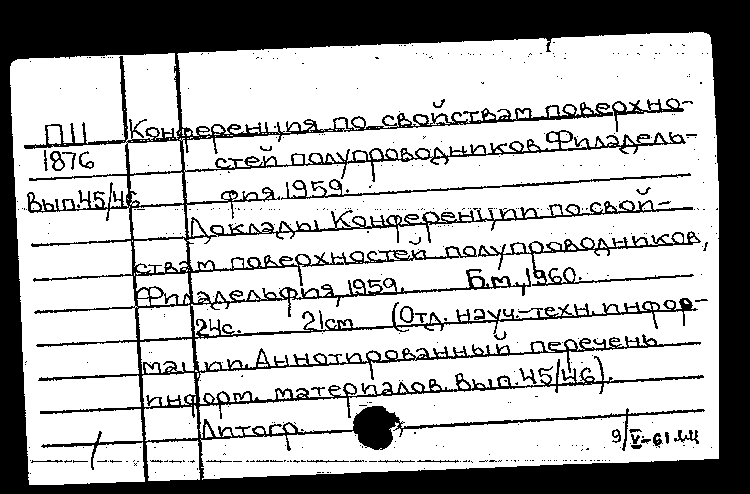 ПII Конференция по свойствам поверхно-
1876 стей полупроводников. Филадель-
Вып.45/46 фия, 1959.
Доклады Конференции по свой-
ствам поверхностей полупроводников,
Филадельфия, 1959. Б.м., 1960.
24с. 21cm (Отд. науч.-техн. инфор-
мации. Аннотированный перечень
информ. материалов. Вып.45/46).
Литогр.
9/V-61